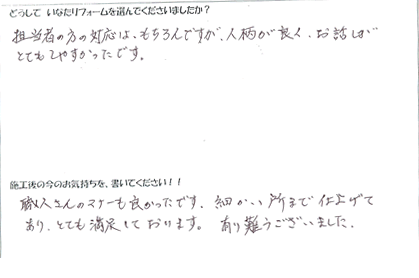 どうして いなたリフォームを選んでくださいましたか？
担当者の方の対応は、もちろんですが、人柄が良く、お話しが
とてもしやすかったです。
施工後の今のお気持ちを、書いてください！！
職人さんのマナーも良かったです。細かい所まで仕上げて
あり、とても満足しております。有り難うございました。